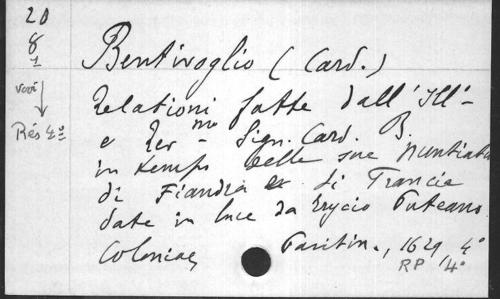 20
8
1
Bentivoglio (Card.)
voir
Relationi fatte dall' Ill-
Rés 4º
e Rev mo - Sign. Card. B.
in tempo delle sue Nuntiature
di Fiandra e di Francia
date in luce da Erycio Puteano
Coloniae, 1629 4º
RP 4º